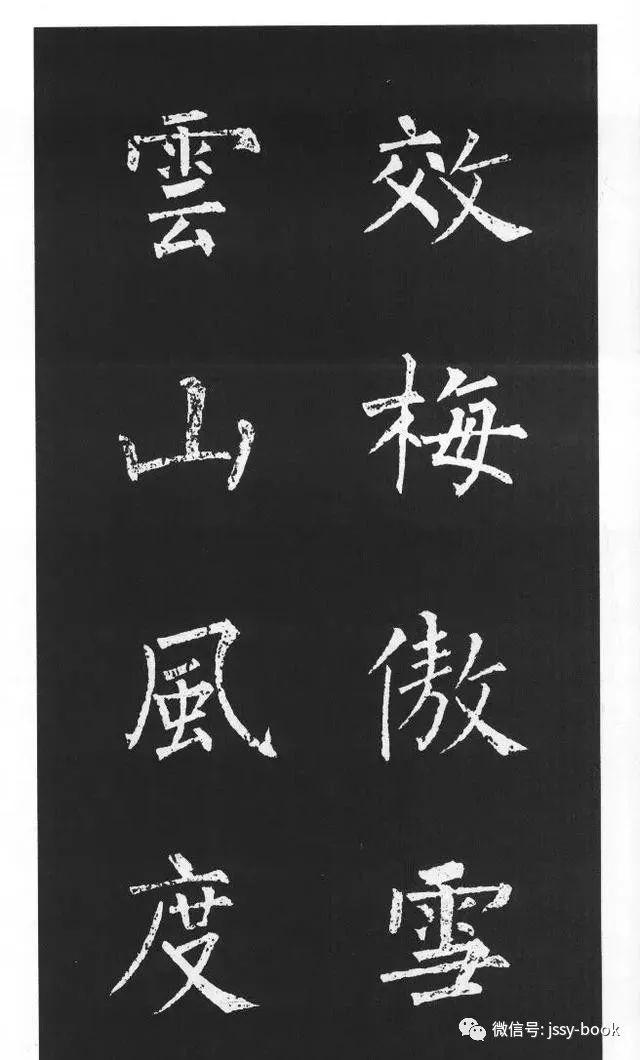 效梅傲雪
雲山風度
微信号: jssy-book